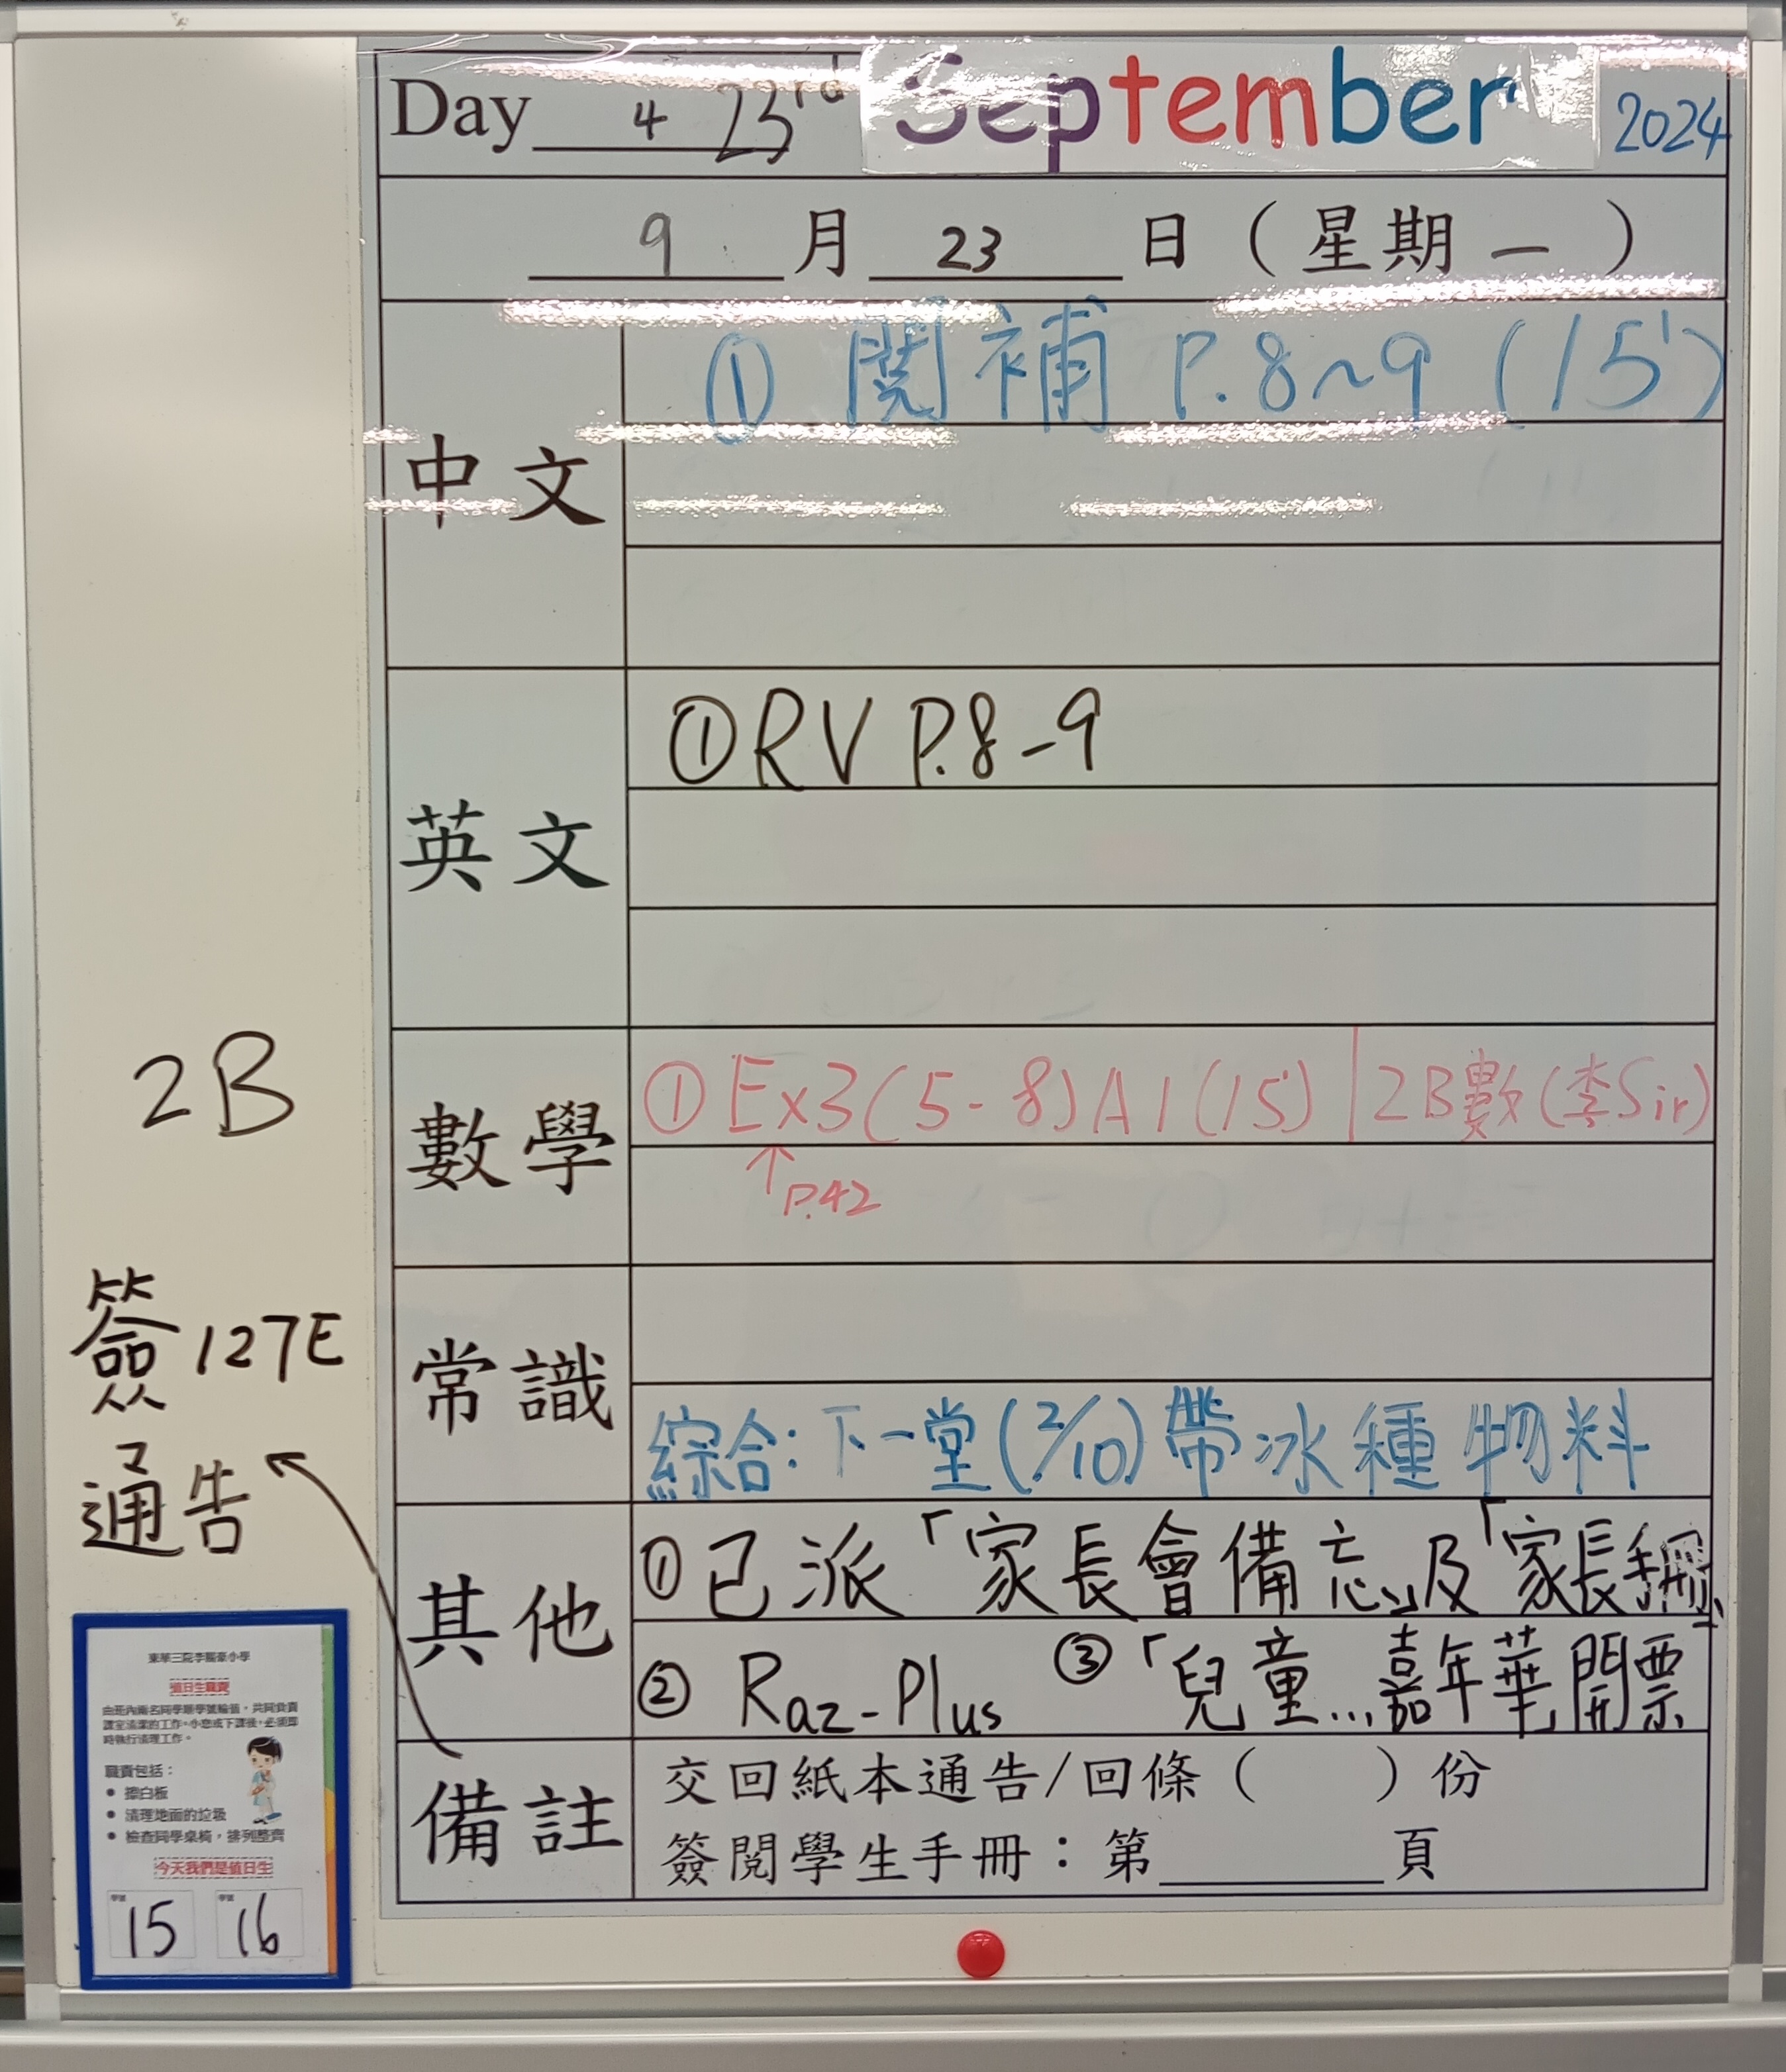 Day 4 23rd September 2024
9 月 23 日 ( 星期 一 )
中文
① 閱補 P.8~9 (15')
英文
① RV P.8-9
數學
① Ex3(5-8)A1(15) | 2B數(李Sir)
↑
P.42
常識
綜合:下一堂(2/10)帶冰種物料
其他
①已派「家長會備忘」及「家長手冊」
② Raz-Plus ③「兒童...嘉年華開票」
備註
交回紙本通告/回條 ( ) 份
簽閱學生手冊:第 頁
2B
簽127E
通告
東華三院李賜豪小學
值日生職責
由班內兩名同學順學號輪值,共同負責
課室清潔的工作。小息或下課後,必須即
時執行清理工作。
職責包括:
● 擦白板
● 清理地面的垃圾
● 檢查同學桌椅,排列整齊
今天我們是值日生
學號 學號
15 16